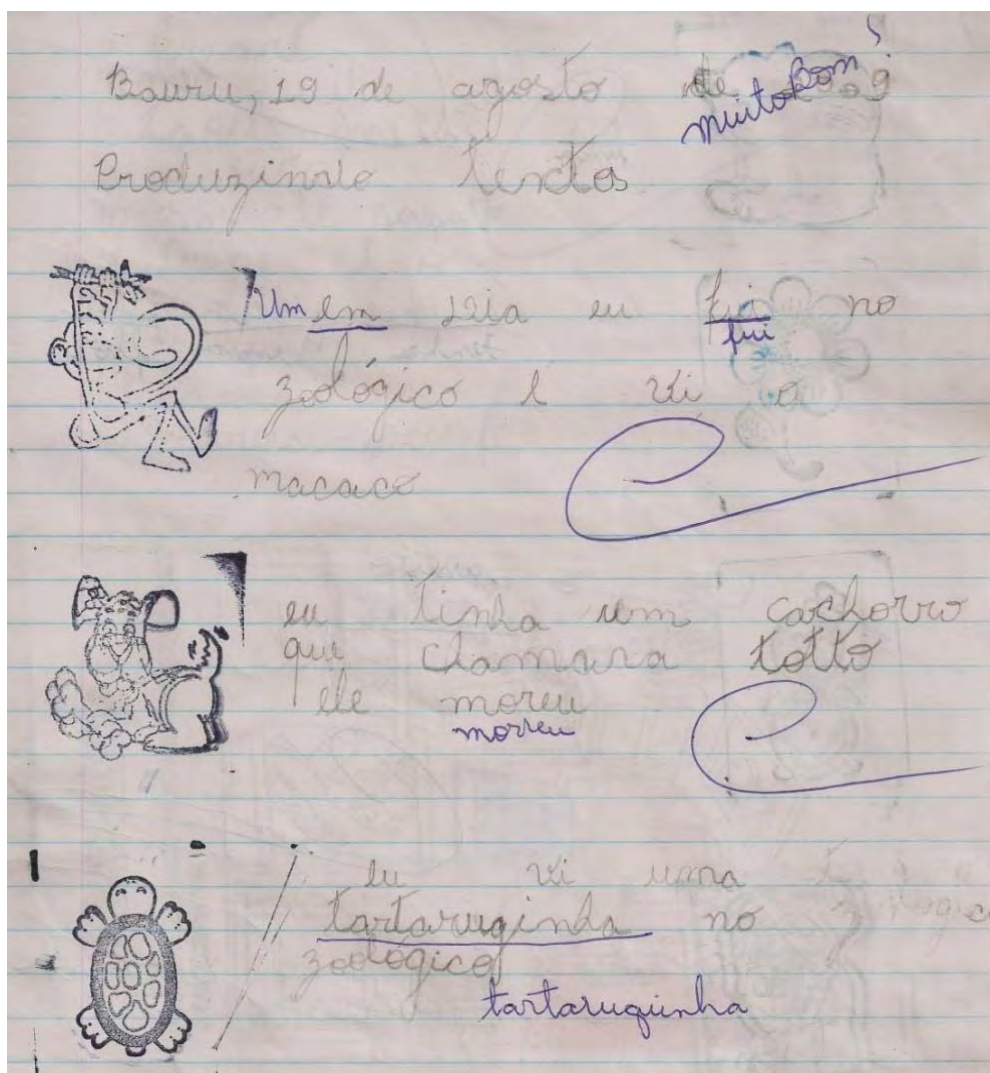 Bauru, 19 de agosto de
muito Bom!
Produzindo textos
Um em dia eu fui no
fui
zoológico e vi o
macaco
eu tinha um cachorro
que chamava totto
ele moreu
morreu
eu vi uma
tartaruginha no
zoológico
tartaruguinha